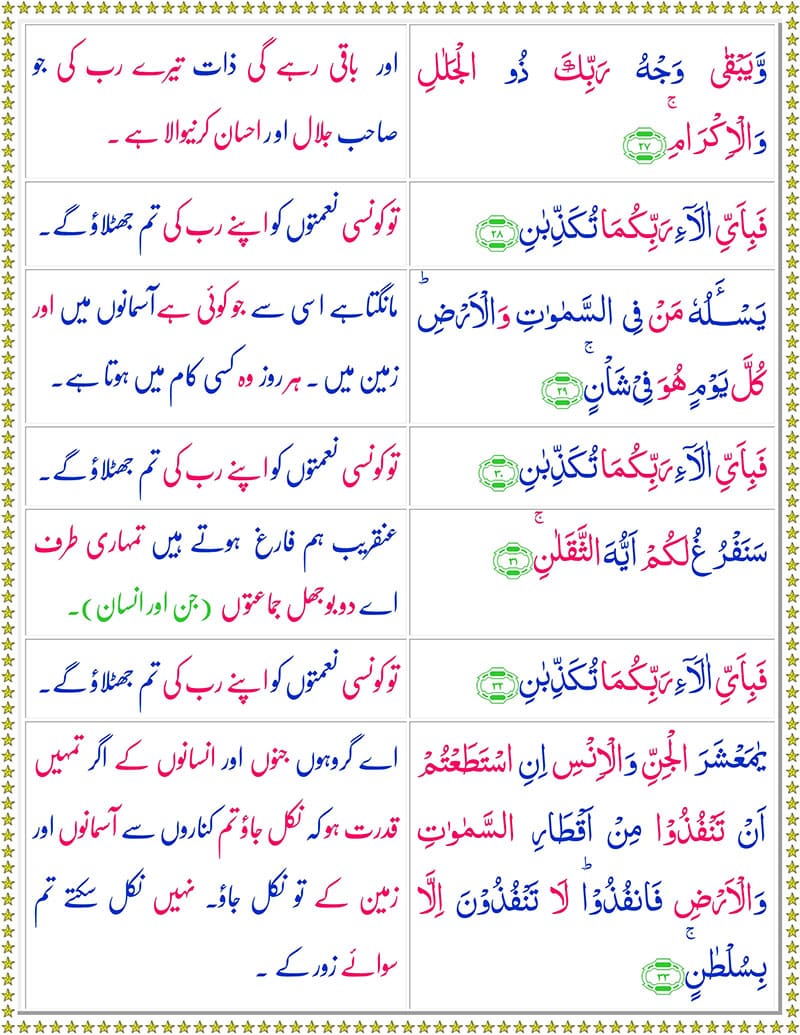 وَّيَبْقٰى وَجْهُ رَبِّكَ ذُو الْجَلٰلِ
وَالْاِكْرَامِۚ ۲۷
اور باقی رہے گی ذات تیرے رب کی جو
صاحب جلال اور احسان کرنیوالا ہے ۔
فَبِاَيِّ اٰلَآءِ رَبِّكُمَا تُكَذِّبٰنِ ۲۸
تو کونسی نعمتوں کو اپنے رب کی تم جھٹلاؤ گے۔
يَسْـَٔلُهٗ مَنْ فِي السَّمٰوٰتِ وَالْاَرْضِؕ
كُلَّ يَوْمٍ هُوَ فِيْ شَاْنٍۚ ۲۹
مانگتا ہے اسی سے جو کوئی ہے آسمانوں میں اور
زمین میں ۔ ہر روز وہ کسی کام میں ہوتا ہے۔
فَبِاَيِّ اٰلَآءِ رَبِّكُمَا تُكَذِّبٰنِ ۳۰
تو کونسی نعمتوں کو اپنے رب کی تم جھٹلاؤ گے۔
سَنَفْرُغُ لَكُمْ اَيُّهَ الثَّقَلٰنِۚ ۳۱
عنقریب ہم فارغ ہوتے ہیں تمہاری طرف
اے دو بوجھل جماعتوں (جن اور انسان)۔
فَبِاَيِّ اٰلَآءِ رَبِّكُمَا تُكَذِّبٰنِ ۳۲
تو کونسی نعمتوں کو اپنے رب کی تم جھٹلاؤ گے۔
يٰمَعْشَرَ الْجِنِّ وَالْاِنْسِ اِنِ اسْتَطَعْتُمْ
اَنْ تَنْفُذُوْا مِنْ اَقْطَارِ السَّمٰوٰتِ
وَالْاَرْضِ فَانْفُذُوْاؕ لَا تَنْفُذُوْنَ اِلَّا
بِسُلْطٰنٍۚ ۳۳
اے گروہوں جنوں اور انسانوں کے اگر تمہیں
قدرت ہو کہ نکل جاؤ تم کناروں سے آسمانوں اور
زمین کے تو نکل جاؤ۔ نہیں نکل سکتے تم
سوائے زور کے ۔